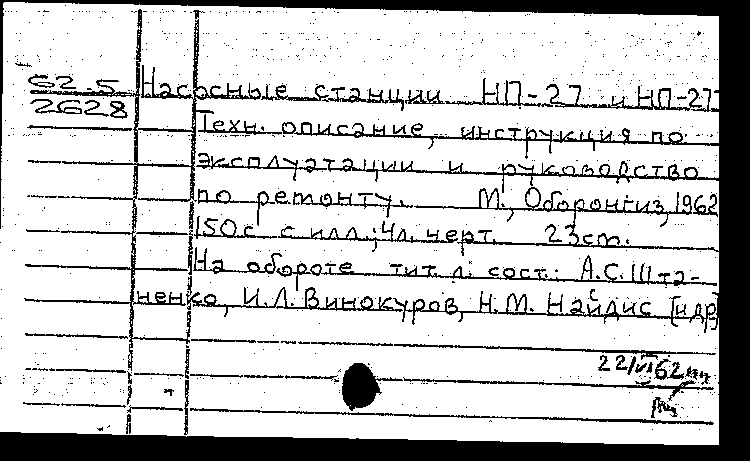 62-5 Насосные станции НП-27 и НП-27
2628 Техн. описание, инструкция по
эксплуатации и руководство
по ремонту. М., Оборонгиз, 1962
150 с с илл.; 4л. черт. 23 cm.
На обороте тит. л. сост.: А.С. Шта-
ненко, И.Л. Винокуров, Н.М. Найдис [и др]
22/VI 62